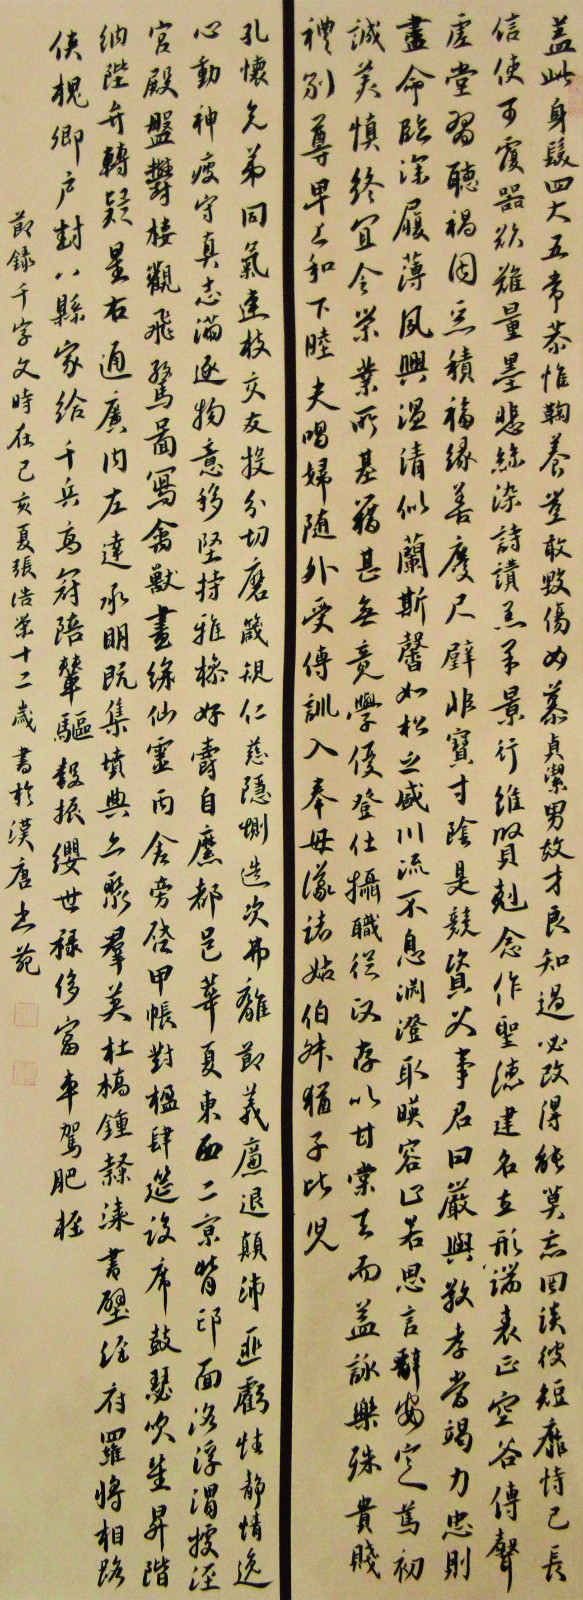 蓋此身髮四大五常恭惟鞠養豈敢毀傷女慕貞潔男效才良知過必改得能莫忘罔談彼短靡恃己長
信使可覆器欲難量墨悲絲染詩讚羔羊景行維賢剋念作聖德建名立形端表正空谷傳聲
虛堂習聽禍因惡積福緣善慶尺璧非寶寸陰是競資父事君曰嚴與敬孝當竭力忠則
盡命臨深履薄夙興溫凊似蘭斯馨如松之盛川流不息淵澄取暎容止若思言辭安定篤初
誠美慎終宜令榮業所基籍甚無竟學優登仕攝職從政存以甘棠去而益詠樂殊貴賤
禮別尊卑上和下睦夫唱婦隨外受傅訓入奉母儀諸姑伯叔猶子比兒
孔懷兄弟同氣連枝交友投分切磨箴規仁慈隱惻造次弗離節義廉退顛沛匪虧性靜情逸
心動神疲守真志滿逐物意移堅持雅操好爵自縻都邑華夏東西二京背邙面洛浮渭據涇
宮殿盤鬱樓觀飛驚圖寫禽獸畫綵仙靈丙舍旁啓甲帳對楹肆筵設席鼓瑟吹笙昇階
納陛弁轉疑星右通廣內左達承明既集墳典亦聚羣英杜槁鍾隸漆書壁經府羅將相路
俠槐卿户封八縣家給千兵高冠陪輦驅轂振纓世祿侈富車駕肥輕
節錄千字文時在己亥夏張浩榮十二歲書於漢唐書苑